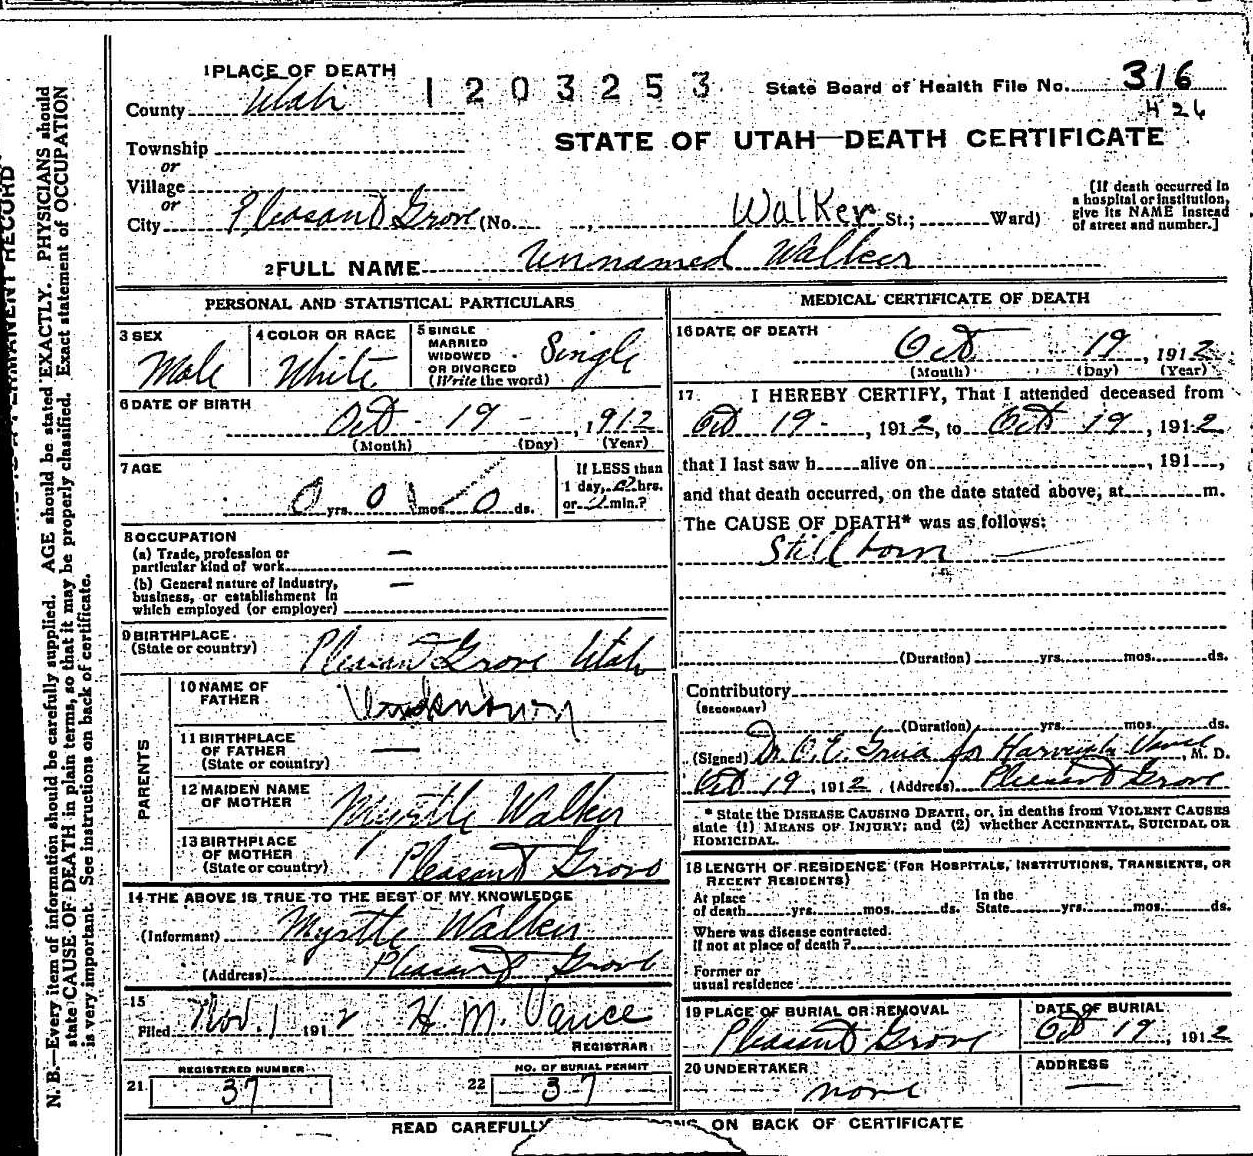 1 PLACE OF DEATH
1203253
State Board of Health File No. 316
426
County Utah
STATE OF UTAH—DEATH CERTIFICATE
Township
or
Village
or
City Pleasant Grove (No. , Walker St.; Ward)
[If death occurred in a hospital or institution, give its NAME instead of street and number.]
2 FULL NAME Unnamed Walker
PERSONAL AND STATISTICAL PARTICULARS
3 SEX
Male
4 COLOR OR RACE
White
5 SINGLE
MARRIED
WIDOWED
OR DIVORCED
(Write the word)
Single
6 DATE OF BIRTH
Oct - 19 - , 1912
(Month) (Day) (Year)
7 AGE
0 yrs. 0 mos. 0 ds.
If LESS than
1 day, 0 hrs.
or min.?
8 OCCUPATION
(a) Trade, profession or
particular kind of work —
(b) General nature of Industry,
business, or establishment in
which employed (or employer) —
9 BIRTHPLACE
(State or country)
Pleasant Grove Utah
PARENTS
10 NAME OF
FATHER
Unknown
11 BIRTHPLACE
OF FATHER
(State or country)
—
12 MAIDEN NAME
OF MOTHER
Myrtle Walker
13 BIRTHPLACE
OF MOTHER
(State or country)
Pleasant Grove
14 THE ABOVE IS TRUE TO THE BEST OF MY KNOWLEDGE
(Informant) Myrtle Walker
(Address) Pleasant Grove
15
Filed Nov. 1 1912 H. M. Vance
REGISTRAR
REGISTERED NUMBER
21 37
NO. OF BURIAL PERMIT
22 37
MEDICAL CERTIFICATE OF DEATH
16 DATE OF DEATH
Oct 19, 1912
(Month) (Day) (Year)
17 I HEREBY CERTIFY, That I attended deceased from
Oct 19 - , 1912, to Oct 19, 1912
that I last saw h alive on , 191 ,
and that death occurred, on the date stated above, at m.
The CAUSE OF DEATH* was as follows:
Still born
(Duration) yrs. mos. ds.
Contributory
(SECONDARY)
(Duration) yrs. mos. ds.
(Signed) Dr. O. E. Grua for Vance, M. D.
Oct 19, 1912 , (Address) Pleasant Grove
* State the DISEASE CAUSING DEATH, or, in deaths from VIOLENT CAUSES
state (1) MEANS OF INJURY; and (2) whether ACCIDENTAL, SUICIDAL OR
HOMICIDAL.
18 LENGTH OF RESIDENCE (FOR HOSPITALS, INSTITUTIONS, TRANSIENTS, OR
RECENT RESIDENTS)
At place
of death yrs. mos. ds.
In the
State yrs. mos. ds.
Where was disease contracted
If not at place of death?
Former or
usual residence
19 PLACE OF BURIAL OR REMOVAL
Pleasant Grove
DATE OF BURIAL
Oct 19, 1912
20 UNDERTAKER
none
ADDRESS
—
READ CAREFULLY ON BACK OF CERTIFICATE
PERMANENT RECORD
N. B.—Every item of information should be carefully supplied. AGE should be stated EXACTLY. PHYSICIANS should
state CAUSE OF DEATH in plain terms, so that it may be properly classified. Exact statement of OCCUPATION
is very important. See instructions on back of certificate.